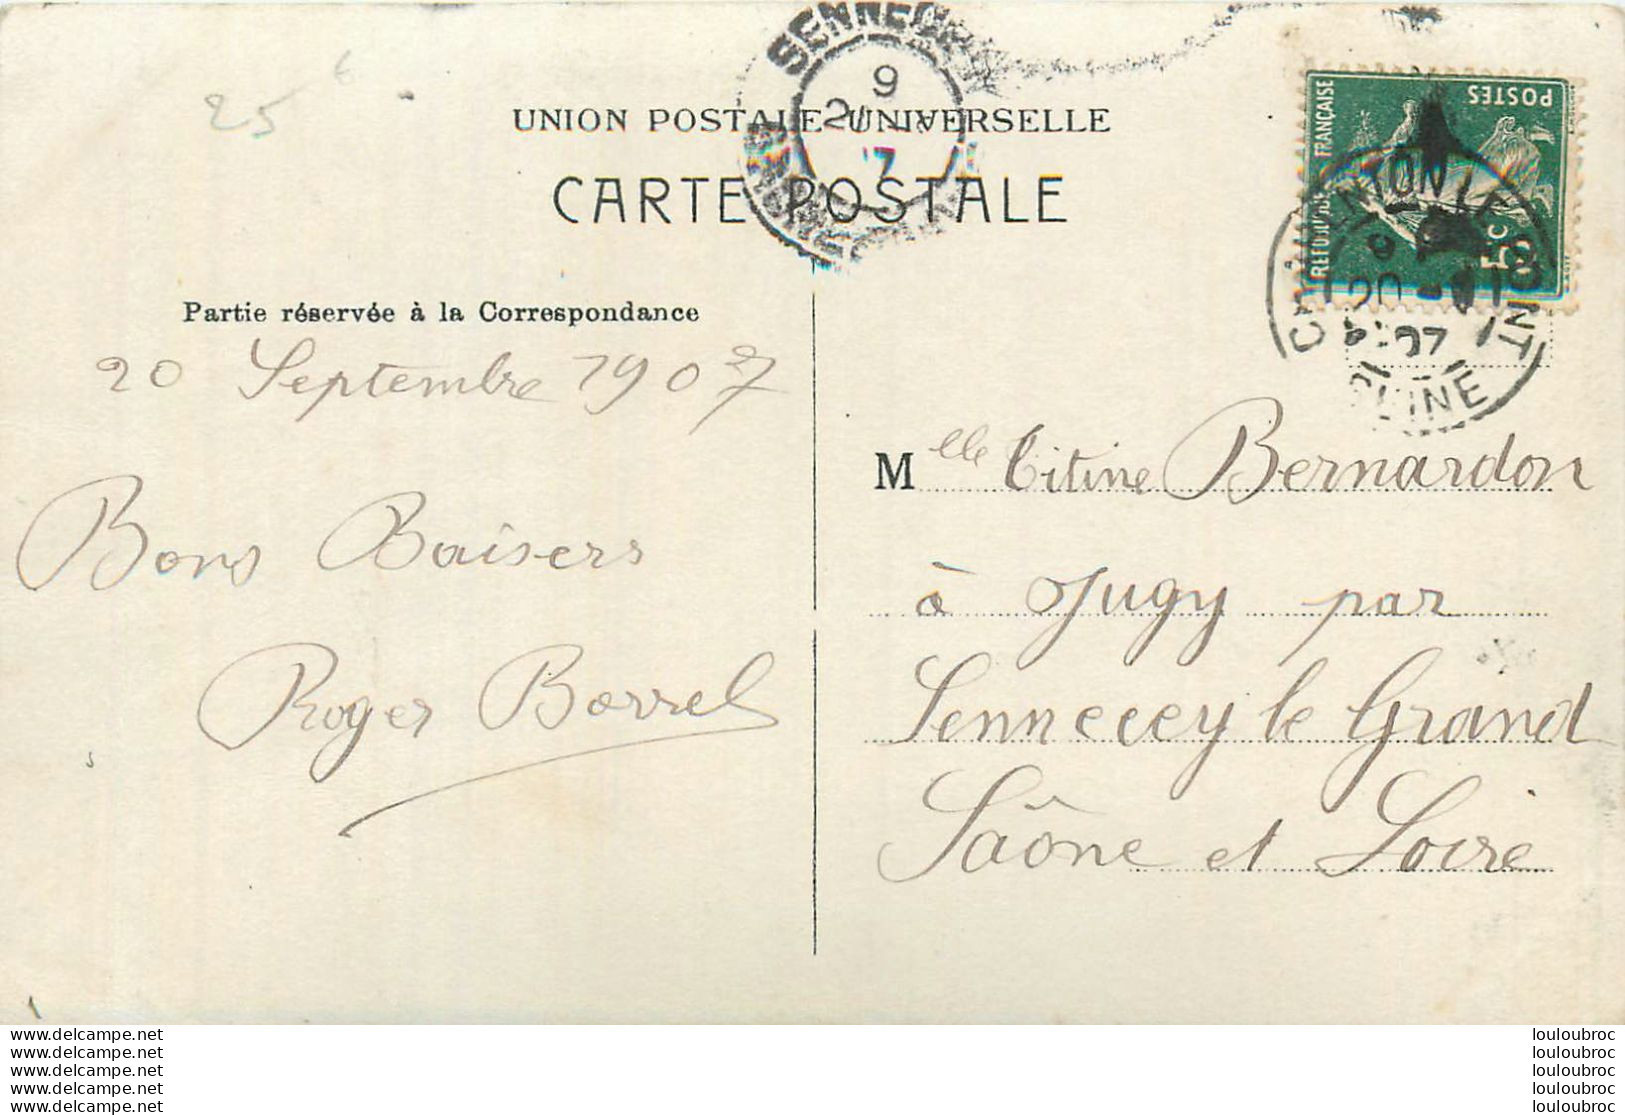 25
UNION POSTALE UNIVERSELLE
CARTE POSTALE
SENNECEY
9
7
POSTES
5c
REPUBLIQUE FRANÇAISE
CHARENTON LE PONT
20
07
SEINE
Partie réservée à la Correspondance
20 Septembre 1907
Bons Baisers
Roger Borrel
Melle Titine Bernardon
à Jugy par
Sennecey le Grand
Saône et Loire
www.delcampe.net
www.delcampe.net
www.delcampe.net
www.delcampe.net
www.delcampe.net
louloubroc
louloubroc
louloubroc
louloubroc
louloubroc